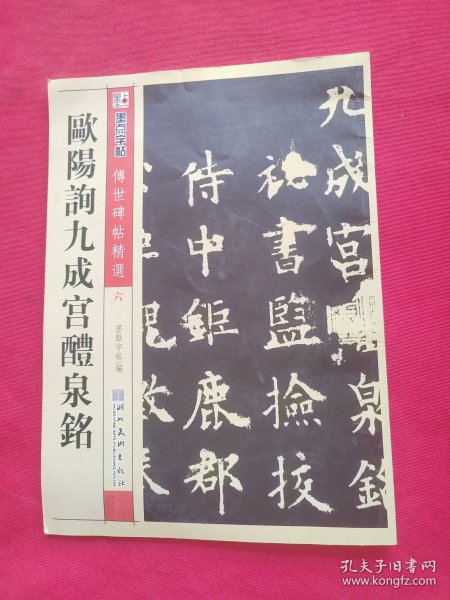 歐陽詢九成宮醴泉銘
墨点字帖
傳世碑帖精選
六
墨點字帖/編
湖北美术出版社
九成宮醴泉銘
祕書監撿挍
侍中鉅鹿郡
孔夫子旧书网
www.kongfz.com